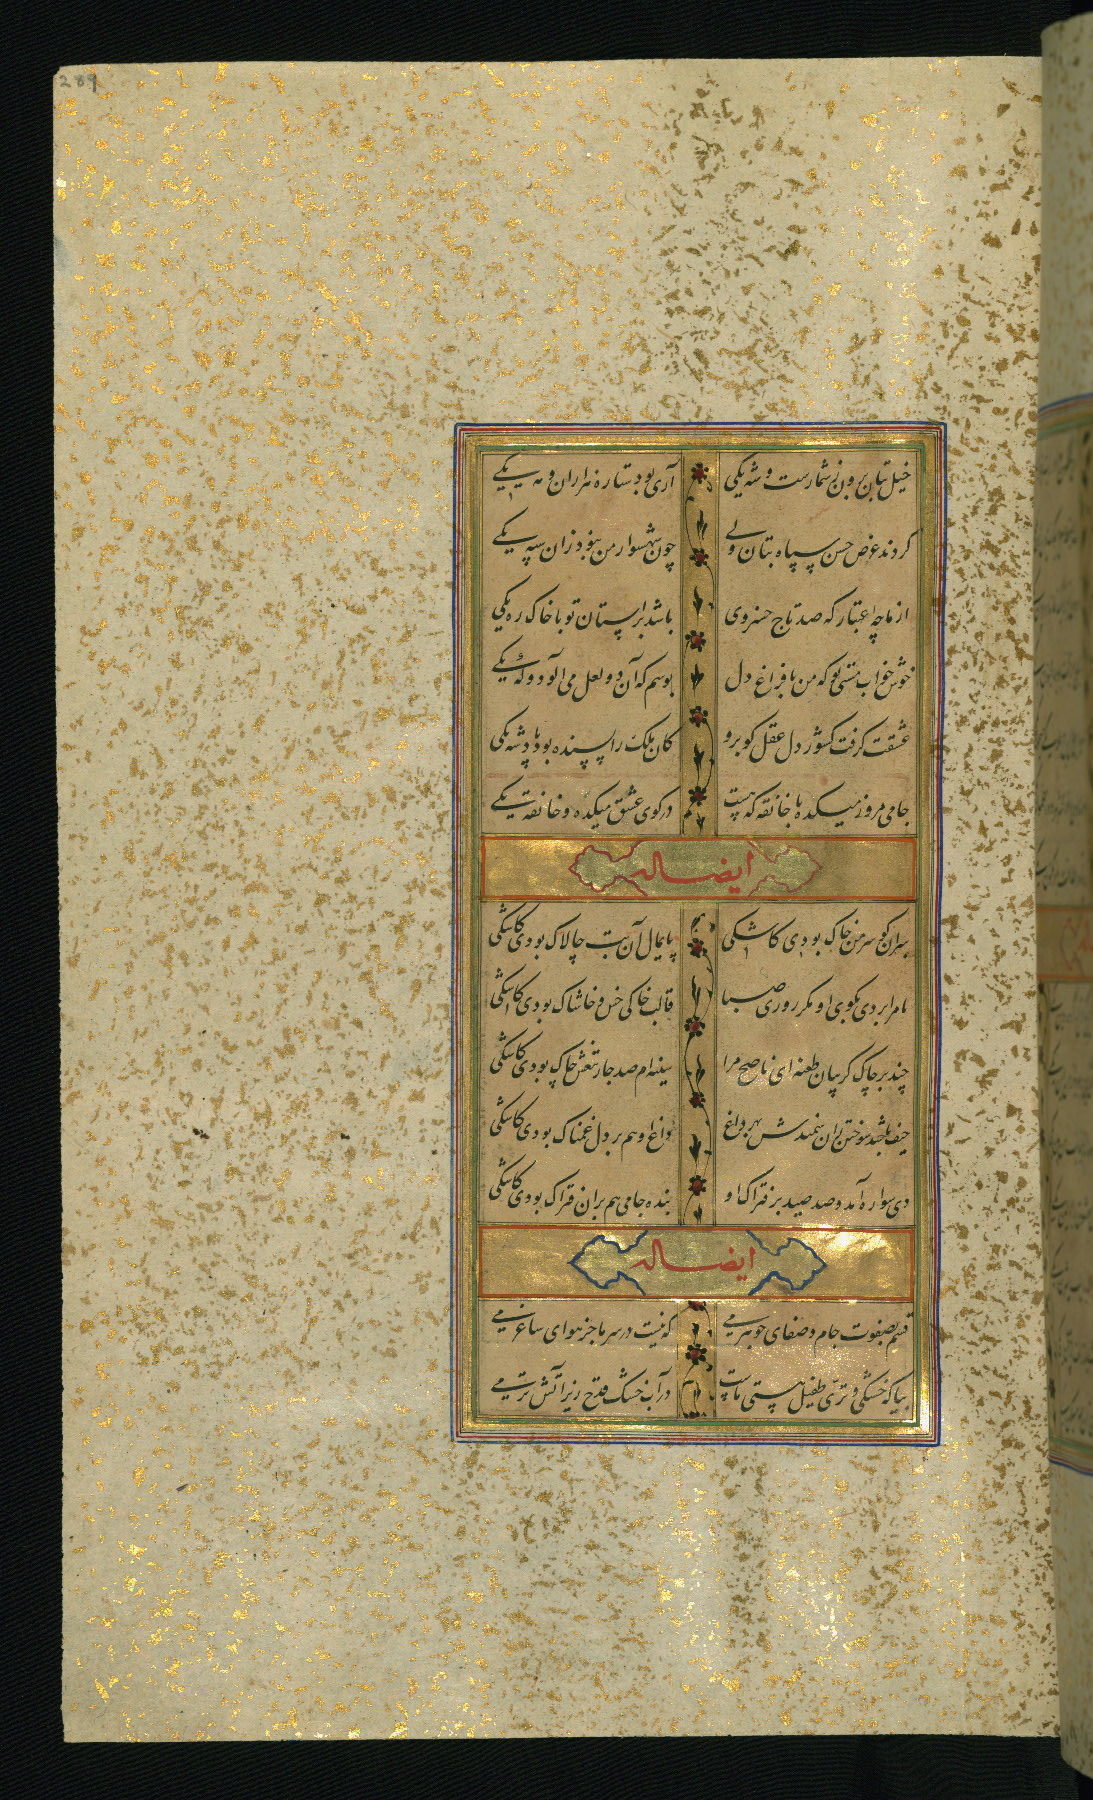 289
خیل بتان برون ز شمارست و شه یکی آری بود ستاره هزاران و مه یکی
کردند عرض حسن سپاه بتان ولی چون شهسوار من نبود زان سپه یکی
از ما چه اعتبار که صد تاج خسروی باشد بر استان تو با خاک ره یکی
خوش خواب مستی تو که من با فراغ دل بوسم که آن دو لعل می آلود و گه یکی
عشقت گرفت کشور دل عقل کو برو کان ملک را پسنده بود پادشه یکی
جامی مرو ز میکده با خانقه که هست در کوی عشق میکده و خانقه یکی
ایضا له
بر سران کو سر من خاک بودی کاشکی پایمال آن بت چالاک بودی کاشکی
تا مرا بردی بکوی او مگر روزی صبا قالب خاکی خس و خاشاک بودی کاشکی
چند بر چاک گریبان طعنه ای ناصح مرا سینه ام صد جا ز تیغش چاک بودی کاشکی
حیف باشد سوختن ران سمندش بهر داغ داغ او هم بر دل غمناک بودی کاشکی
دی سواره آمد و صد صید بر فتراک او بنده جامی هم بران فتراک بودی کاشکی
ایضا له
قسم بصفوت جام و صفای جوهر می که نیست در سر ما جز هوای ساغر می
بیا که خشکی و تری طفیل هستی ماست در آب خشک قدح ریز آتش تر می